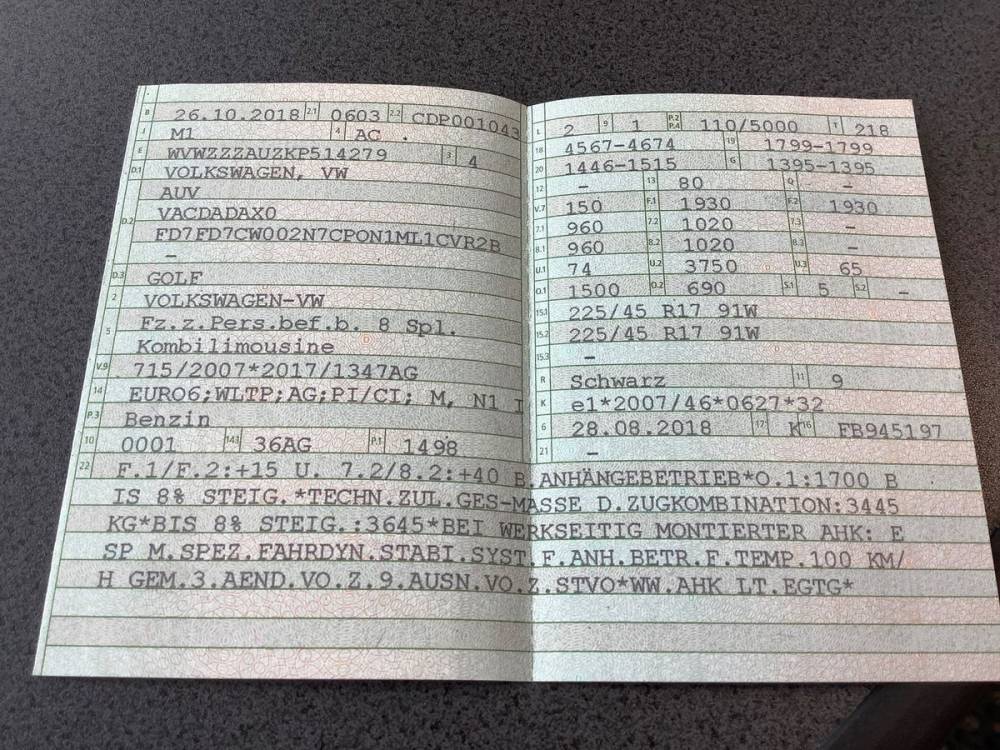 B 26.10.2018 2.1 0603 2.2 CDP001043
J M1 4 AC .
E WVWZZZAUZKP514279 3 4
D.1 VOLKSWAGEN, VW
AUV
D.2 VACDADAX0
FD7FD7CW002N7CPON1ML1CVR2B
–
D.3 GOLF
2 VOLKSWAGEN-VW
5 Fz.z.Pers.bef.b. 8 Spl.
Kombilimousine
V.9 715/2007*2017/1347AG
14 EURO6;WLTP;AG;PI/CI; M, N1 I
P.3 Benzin
10 0001 14.1 36AG P.1 1498
L 2 9 1 P.2 P.4 110/5000 T 218
18 4567-4674 19 1799-1799
20 1446-1515 G 1395-1395
12 – 13 80 Q –
V.7 150 F.1 1930 F.2 1930
7.1 960 7.2 1020 7.3 –
8.1 960 8.2 1020 8.3 –
U.1 74 U.2 3750 U.3 65
O.1 1500 O.2 690 S.1 5 S.2 –
15.1 225/45 R17 91W
15.2 225/45 R17 91W
15.3 –
R Schwarz 11 9
K e1*2007/46*0627*32
6 28.08.2018 17 K 16 FB945197
21 –
22 F.1/F.2:+15 U. 7.2/8.2:+40 B.ANHÄNGEBETRIEB*O.1:1700 B
IS 8% STEIG.*TECHN.ZUL.GES-MASSE D.ZUGKOMBINATION:3445
KG*BIS 8% STEIG.:3645*BEI WERKSEITIG MONTIERTER AHK: E
SP M.SPEZ.FAHRDYN.STABI.SYST.F.ANH.BETR.F.TEMP.100 KM/
H GEM.3.AEND.VO.Z.9.AUSN.VO.Z.STVO*WW.AHK LT.EGTG*